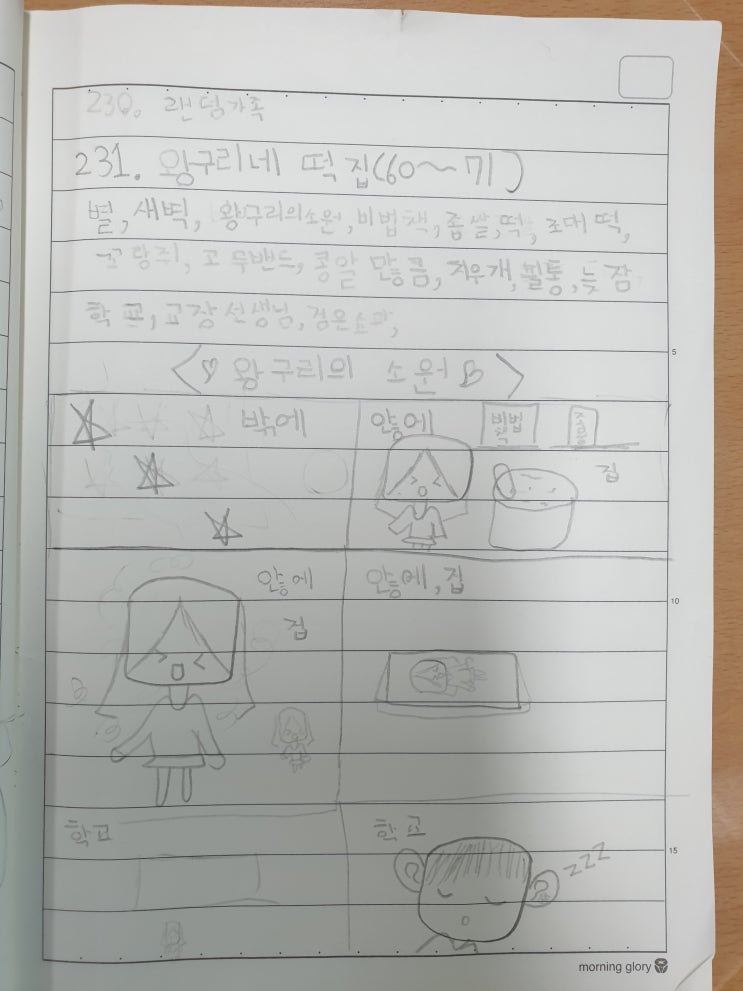 230. 랜덤가족
231. 왕구리네 떡집(60~71)
별, 새벽, 왕구리의소원, 비법책, 좁쌀, 떡, 초대 떡,
꼬랑쥐, 고무밴드, 콩알 만큼, 지우개, 필통, 늦잠
학교, 교장선생님, 검은소파,
<♡ 왕구리의 소원 ♡>
밖에
안에
비법
책
집
안에
집
안에, 집
학교
학교
zzz
5
10
15
morning glory